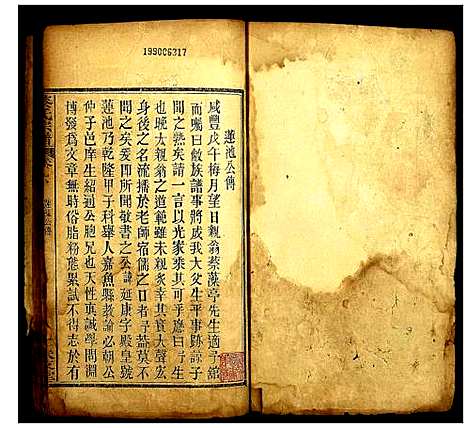 199006317
蓮池公傳
咸豐戊午梅月望日親翁蔡藻亭先生適予舘
而囑曰敝族譜事將成我大父生平事跡諒子
聞之熟矣請一言以光家乘其可乎應曰予生
也晚太親翁之道範雖未親炙其大聲宏
身後之名流播於老師宿儒之口者予蓋莫不
聞之矣爰即所聞敬書之公諱延康字殿皇號
蓮池乃乾隆甲子科舉人嘉魚縣教諭必朝公
仲子邑庠生紹過公胞兄也天性眞誠學問淵
博發爲文章無時俗脂粉態累試不得志於有
蓮池公傳